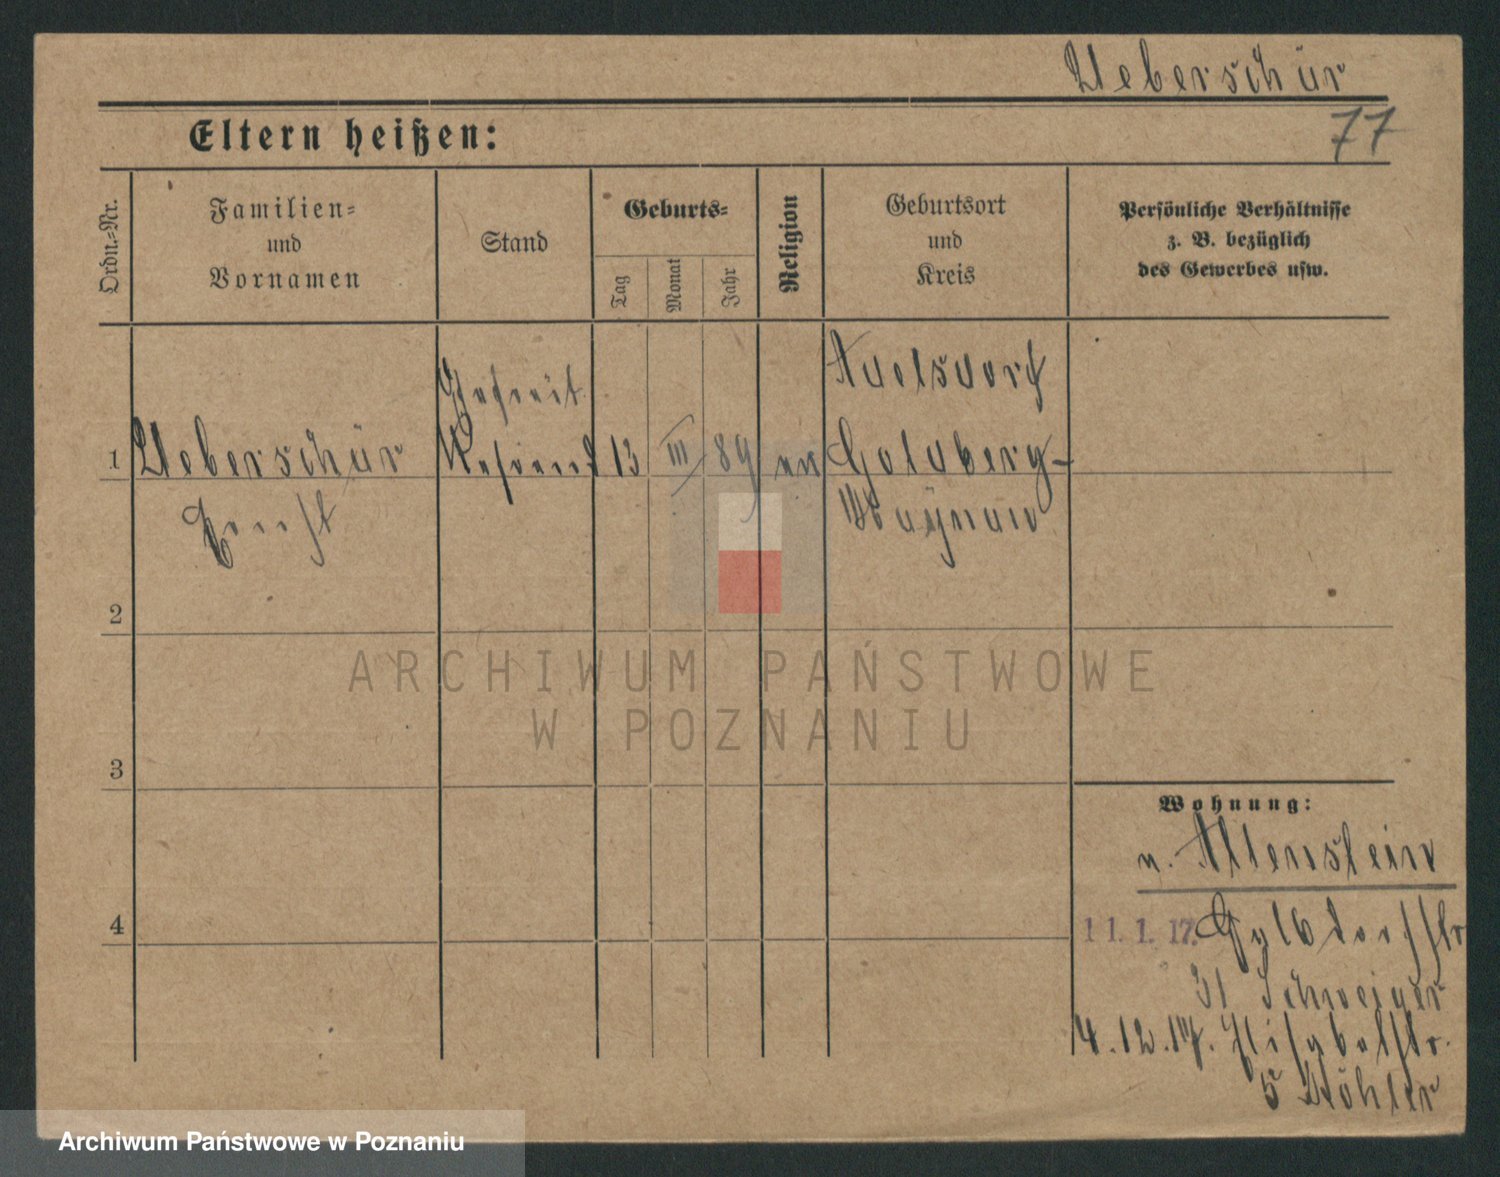 Ueberschär
77
Eltern heißen:
Ordn.-Nr.
Familien-
und
Vornamen
Stand
Geburts-
Tag
Monat
Jahr
Religion
Geburtsort
und
Kreis
Persönliche Verhältnisse
z. B. bezüglich
des Gewerbes usw.
1
Ueberschär
Ernst
Gefreit.
13
III
89
ev
Adelsdorf
Goldberg-
Haynau
2
3
4
Wohnung:
v. Allenstein
11. 1. 17.
31
4.12.17. Elisabetstr.
5 Köhler
ARCHIWUM PAŃSTWOWE
W POZNANIU
Archiwum Państwowe w Poznaniu